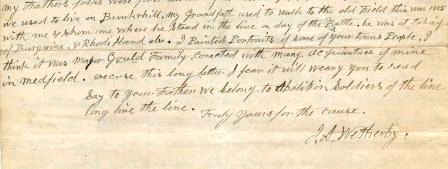 my Fathers
we used to live on Bunkhill. my Grandfath used to walk to the old Field this was 1825
with me & show me where he stood in the line on day of the Battle. he was at takeing
of Burgoine, & Rhode Island also. I Painted Portraits of some of your towns People, I
think it was major Gould Family. conected with many acquantices of mine
in medfield. excuse this long letter I fear it will weary you to read
Say to your Father We belong to Abolition Soldiers of the line
long live the line.
Truly yours for the cause.
J. A. Wetherby.